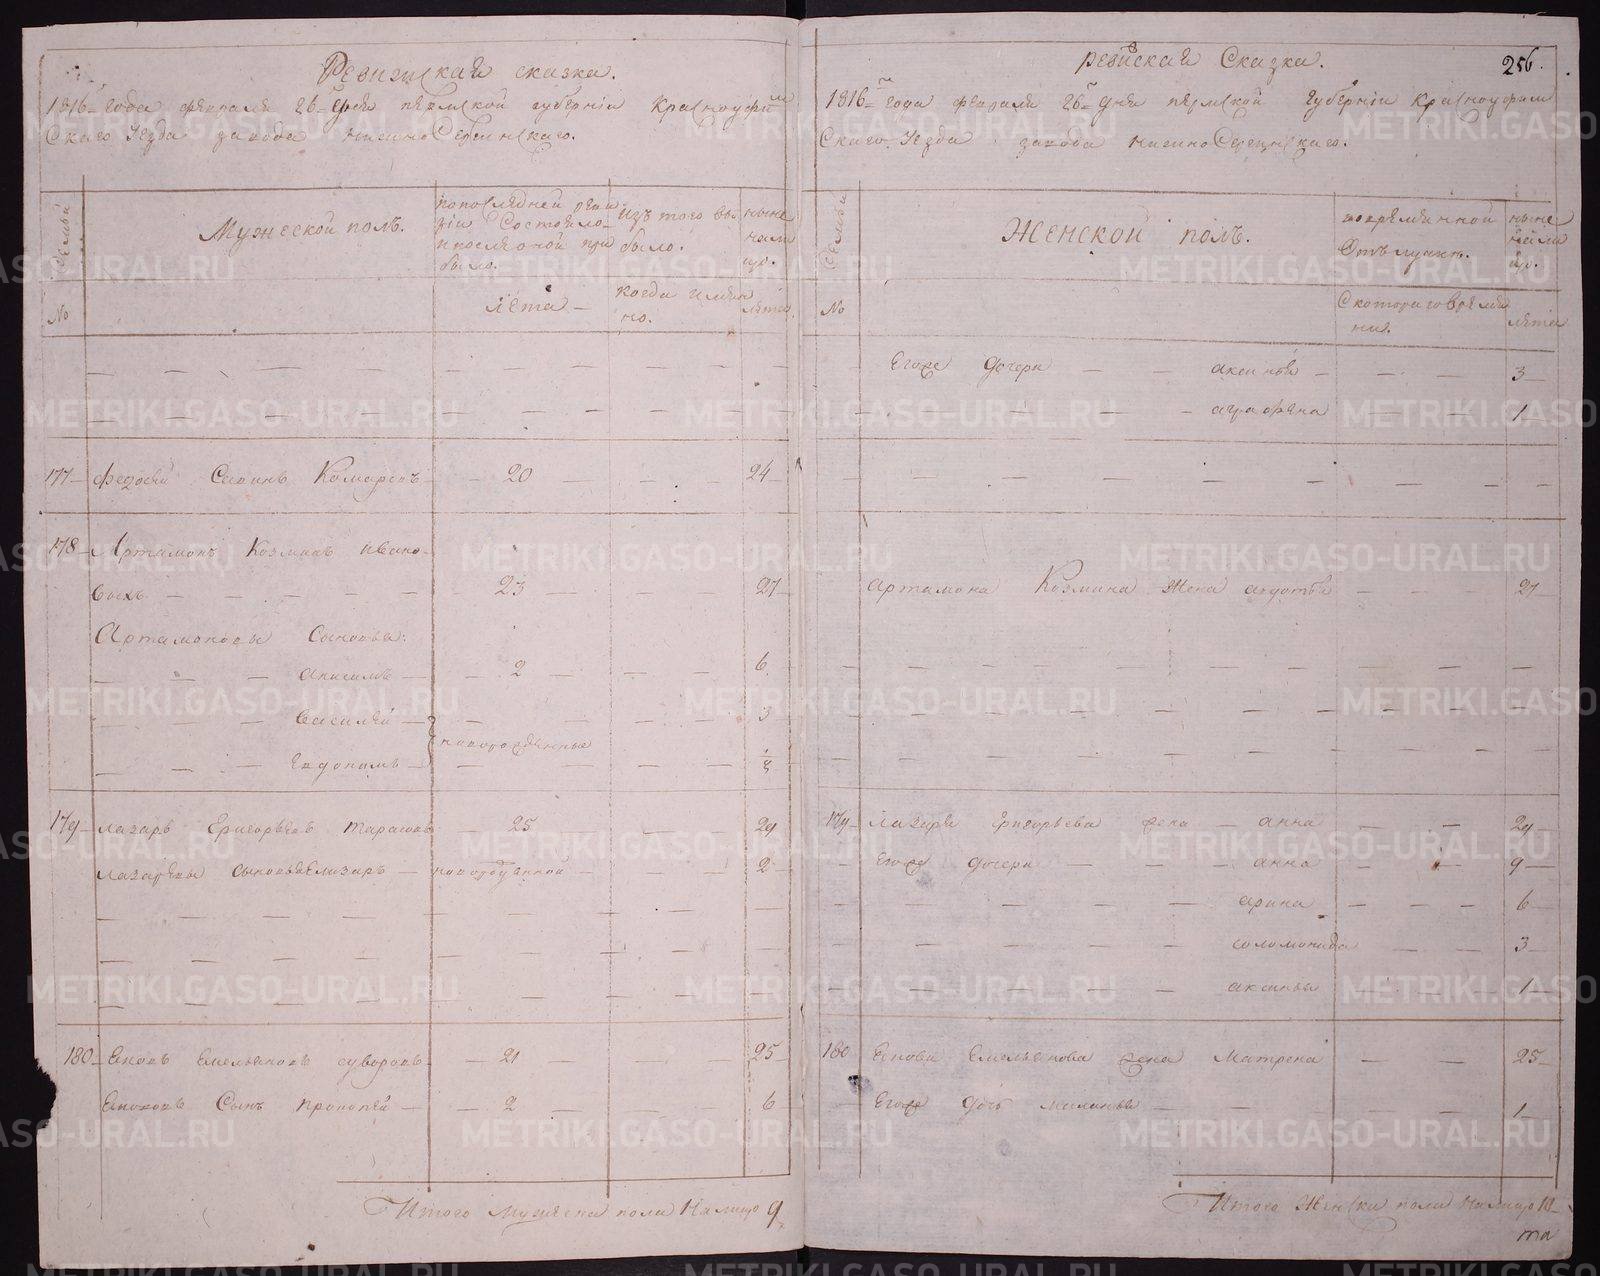 Ревижская сказка.
1816 года февраля 26 дня пермской губернiи Красноуфим
Скаго Уезда завода нижно Сергинскаго.
Семьи
Мужеской полъ.
попоследней реви
зiи Состояло
и после оной при
было.
Изъ того вы
было.
ныне
нали
цо.
№
лета
когда имян
но.
лета
177 Федосей Савинъ Комаровъ 20 24
178 Артамонъ Козминъ Ивано
выхъ 23 27
Артамоновы Сыновья:
Анисимъ 2 6
Василей 3
Евдокимъ
новорожденные
179 Лазарь Григорьевъ Тарасовъ 25 29
Лазаревы сыновья Елизаръ новорожденной 2
180 Яковъ Емельяновъ Суворовъ 21 25
Яковъ Сынъ Прокопей 2 6
Итого Мужеска пола Налицо 9
ревиская Сказка.
256.
1816 года февраля 26 дня пермской губернiи Красноуфим
Скаго Уезда завода нижно Сергинскаго.
Семьи
Женской полъ.
во временной
Отълучке.
ныне
нали
цо.
№
Скотораго време
ни.
лета
Егоже дочери аксинья 3
аграфена 1
Артамона Козмина Жена авдотья 27
179 Лазаря Григорьева жена анна 29
Егоже дочери анна 9
арина 6
соломонида 3
аксинья 1
180 Якова Емельянова жена Матрена 25
Егоже дочь маланья 1
Итого Женска пола Налицо 10
та
METRIKI.GASO-URAL.RU